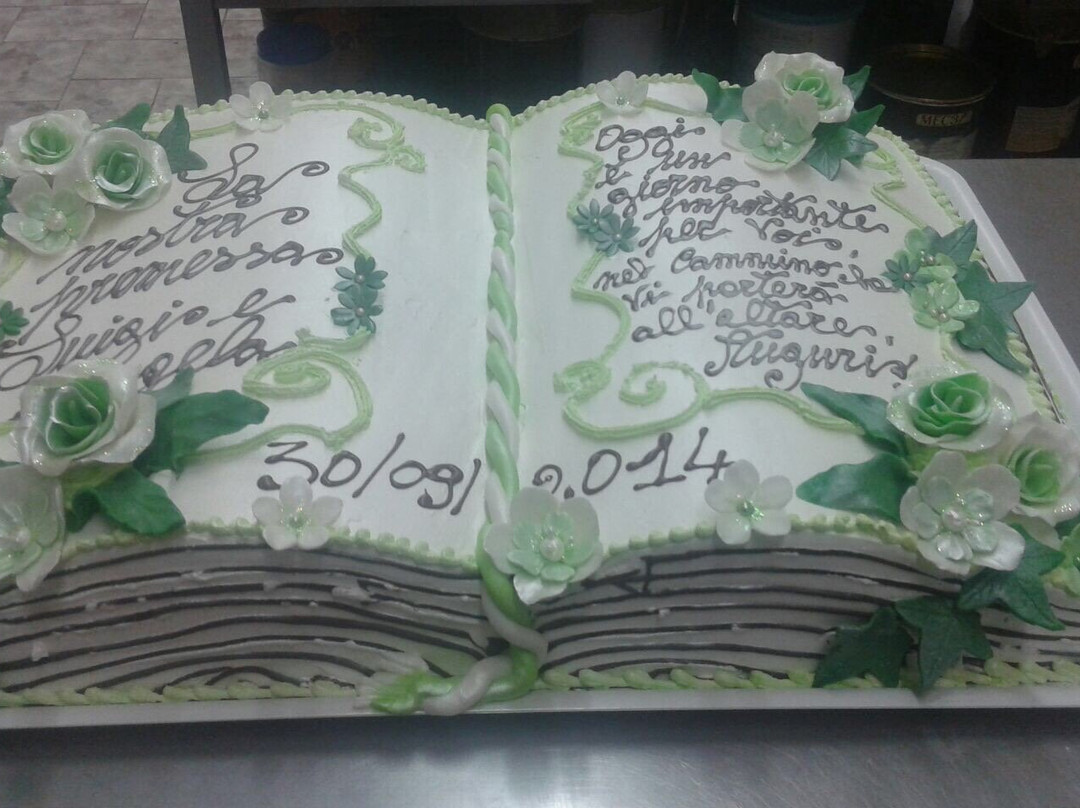 La
nostra
promessa
Luigi e
Oggi
è un
giorno
importante
per voi,
nel Cammino che
vi porterà
all'altare,
Auguri!
30/09/2014